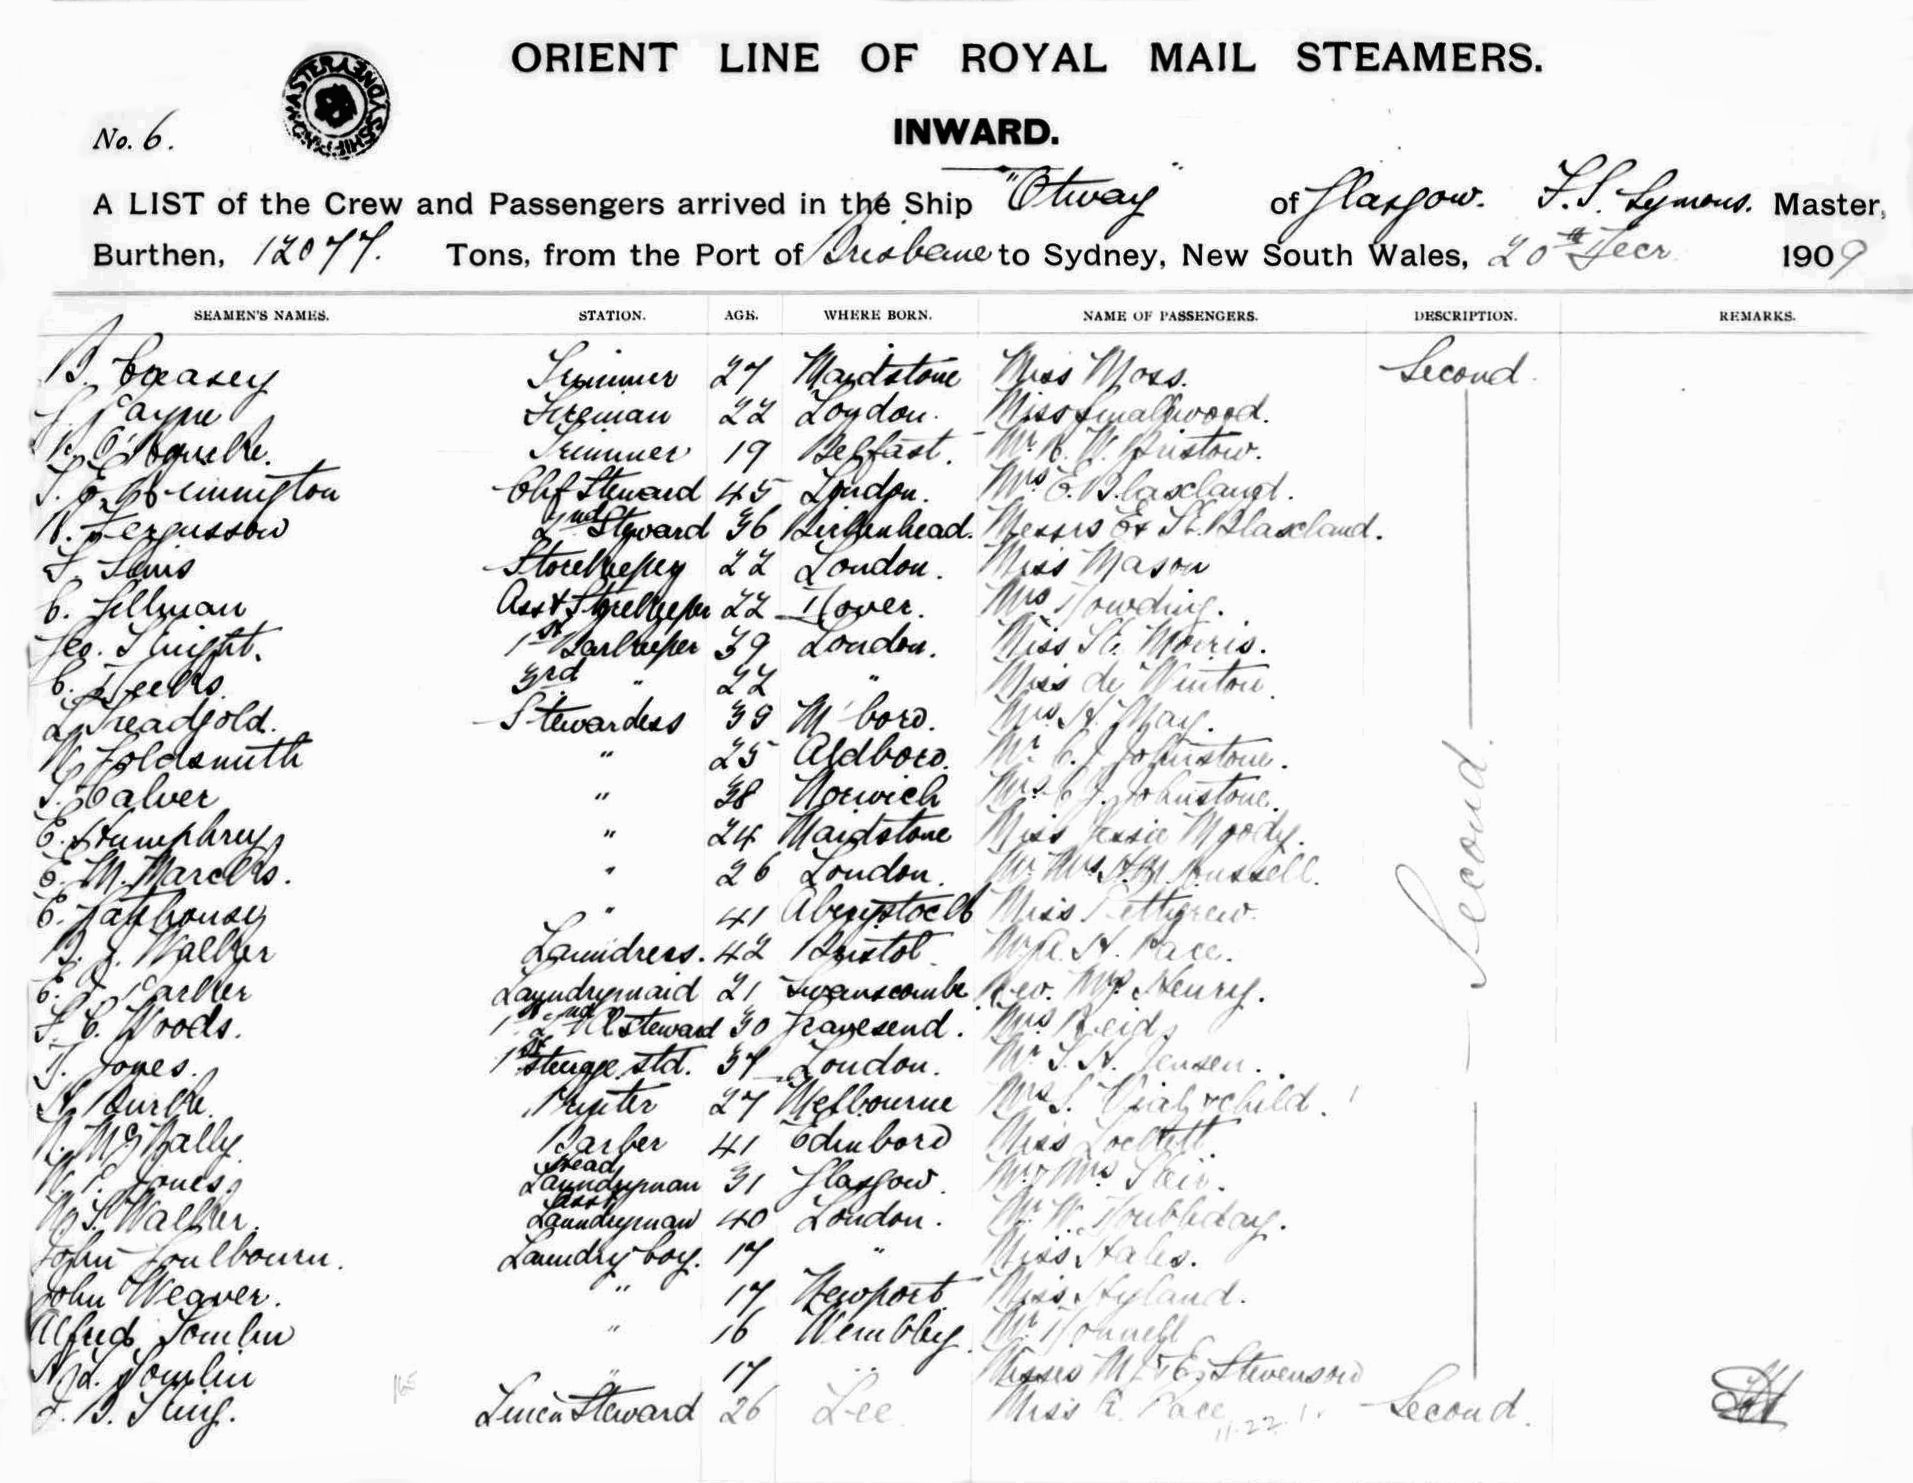 ORIENT LINE OF ROYAL MAIL STEAMERS.
INWARD.
No. 6.
A LIST of the Crew and Passengers arrived in the Ship "Otway" of Glasgow. F.S. Symons. Master,
Burthen, 12077. Tons, from the Port of Brisbane to Sydney, New South Wales, 20th Decr 1909
SEAMEN'S NAMES. STATION. AGE. WHERE BORN. NAME OF PASSENGERS. DESCRIPTION. REMARKS.
B. Creasey Trimmer 27 Maidstone Miss Moss. Second.
Payne Fireman 22 London. Miss Smallwood.
O'Rourke. Trimmer 19 Belfast. Mr. W. Bristow.
Chf Steward 45 London. Mrs E. Blaxland.
Fergusson 2nd Steward 36 Birkenhead. Messrs E & St. Blaxland.
Storekeeper 22 London. Miss Mason
C. Fellman Asst Storekeeper 22 Dover. Mrs Dowding.
Geo. Knight. 1st Barkeeper 39 London. Miss St. Morris.
C. 3rd " 22 " Miss de Winton.
L. Treadgold. Stewardess 39 M'boro. Mrs H. May.
Goldsmith " 25 Aldboro. Mr C. J. Johnstone.
Calver " 38 Norwich Mrs C. J. Johnstone.
E. Humphrey " 24 Maidstone Miss Jessie Moody.
E. M. Marcks. " 26 London. Mr Mrs H. M. Russell.
E. " 41 Miss Pettigrew.
B. J. Walker Laundress. 42 Bristol. A. H. Pace.
E. J. Parker Laundrymaid 21 Swanscombe Rev. Mrs. Henry.
F. C. Woods. 1st 2nd Cl steward 30 Gravesend. Mrs Reid
T. Jones. 1st steerage std. 37 London. Mr. S. H. Jensen.
H. Burke. Printer 27 Melbourne Mrs S. & child.
McNally Barber 41 Edinboro Miss Lockett
Jones Head Laundryman 31 Glasgow. Mr & Mrs
Walker. Asst Laundryman 40 London. Mr W. Doubleday.
John Goulbourn. Laundry boy. 17 " Miss Hales.
John Weaver. " 17 Newport Miss Hyland.
Alfred Tomlin " 16 Wembley. Mr Donnell
Tomlin " 17 " Misses M & E. Stevenson
B. King. Linen Steward 26 Lee Miss R. Pace Second.
Second.
11.22